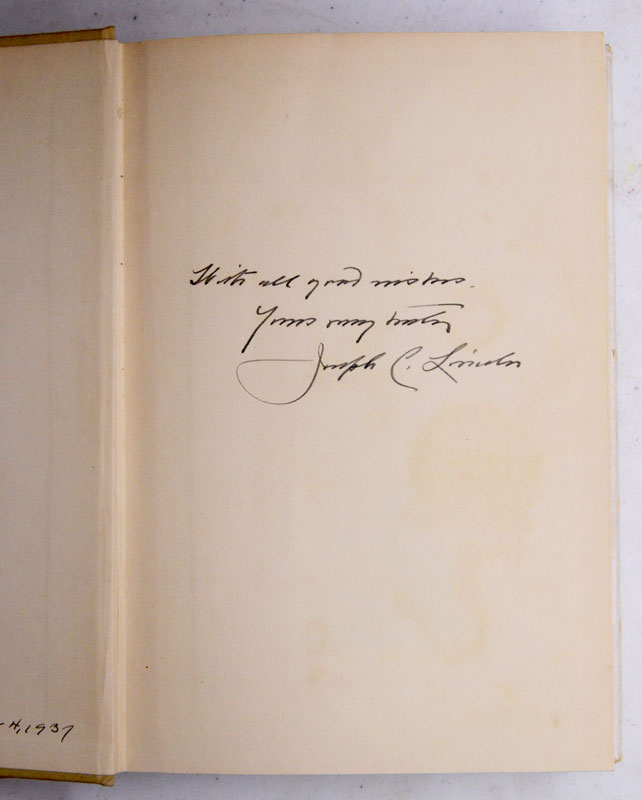 With all good wishes.
Yours very truly
Joseph C. Lincoln
4, 1937